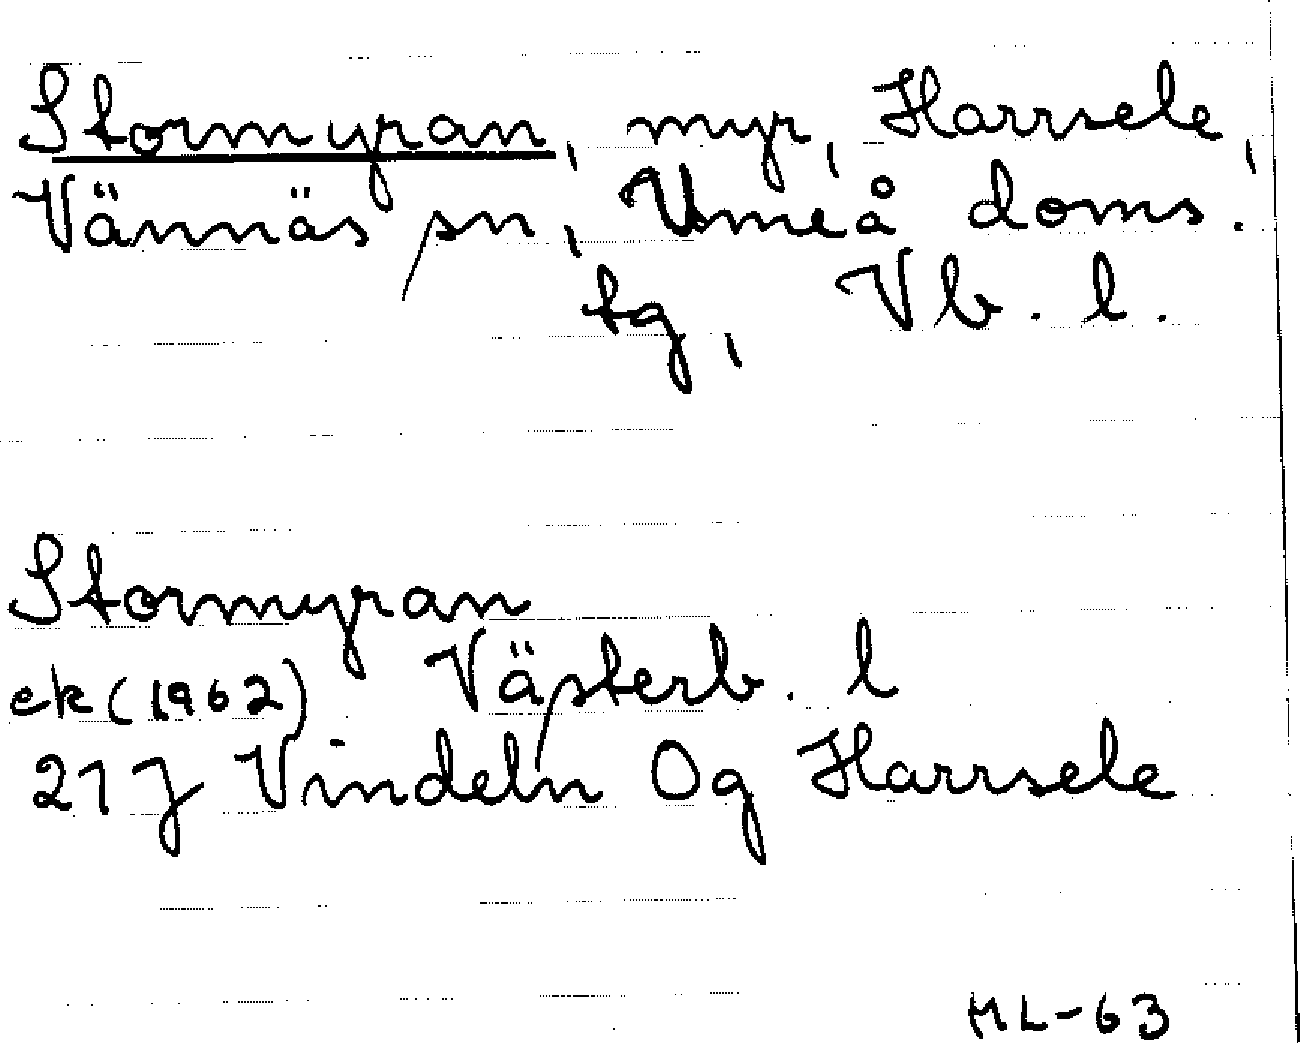 Stormyran, myr, Harrsele,
Vännäs sn, Umeå doms.
tg, Vb. l.
Stormyran
ek (1962) Västerb. l
21 J Vindeln 0g Harrsele
ML-63